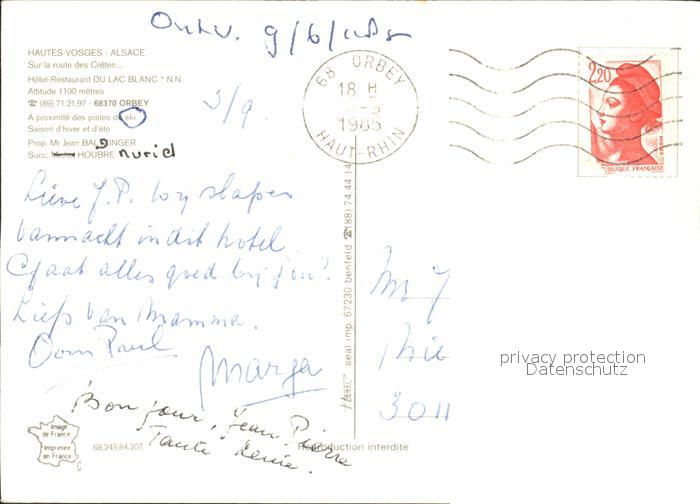 HAUTES-VOSGES - ALSACE
Sur la route des Crêtes...
Hôtel-Restaurant DU LAC BLANC * N.N.
Altitude 1100 mètres
☎ (89) 71.21.97 - 68370 ORBEY
A proximité des pistes de ski
Saison d'hiver et d'été
Prop. Mr Jean
Succ. HOUBRE Muriel
3/9.
68 ORBEY
18 H
-9
1985
HAUT-RHIN
2,20
POSTES
REPUBLIQUE FRANÇAISE
Lieve J.P. wy slapen
vannacht in dit hotel.
Gaat alles goed by jou?
Liefs van Mamma.
Oom Paul
Marga
Bonjour, Jean Pierre
Tante
seal imp. 67230 benfeld ☎ (88) 74.44.14
Mr J
3011
privacy protection
Datenschutz
Image
de France
Imprimée
en France
68.249.84.207
Reproduction interdite